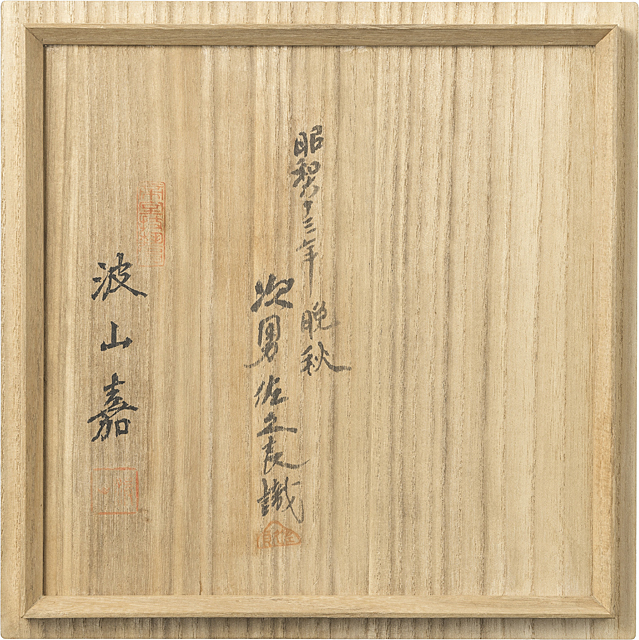 昭和六十三年晩秋
次男佐久良識
波山嘉